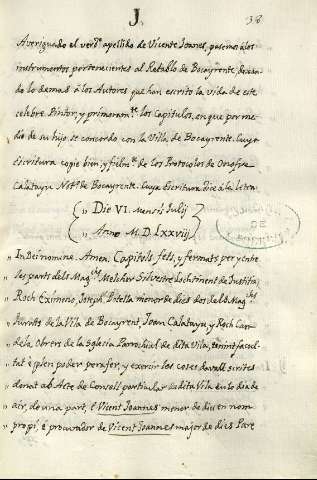 J.
38
Averiguado el verdº. apellido de Vicente Joanes, pasemos à los
instrumentos pertenecientes al Retablo de Bocayrente, dexan
do lo demas à los Autores que han escrito la vida de este
celebre Pintor, y primeram.te los Capitulos, en que por me
dio de su hijo se concordo con la Villa de Bocayrente. Cuya
escritura copie bien, y fielm.te de los Protocolos de Onofre
Calatayu Not.º de Bocayrente. Cuya Escritura dice à la Letra
Die VI. Mensis Julij
Anno M.D.LXXviij
In Dei nomine. Amen. Capitols fets, y fermats per y entre
les parts dels Mag.chs Melchor Silvestre Lochtinent de Justicia,
Roch Eximeno, Joseph Pitella menor de dies dos dels Mag.chs
Jurats de la Vila de Bocayrent, Joan Calatayu y Roch Can
dela Obrers de la Esglesia Parrochial de dita Vila, tenint facul
tat è plen poder per a fer, y exercir les coses davall scrites
donat ab Acte de Consell particular de dita Vila en lo dia de
air, de una part, è Vicent Joannes menor de dies en nom
propi, è procurador de Vicent Joannes major de dies Pare